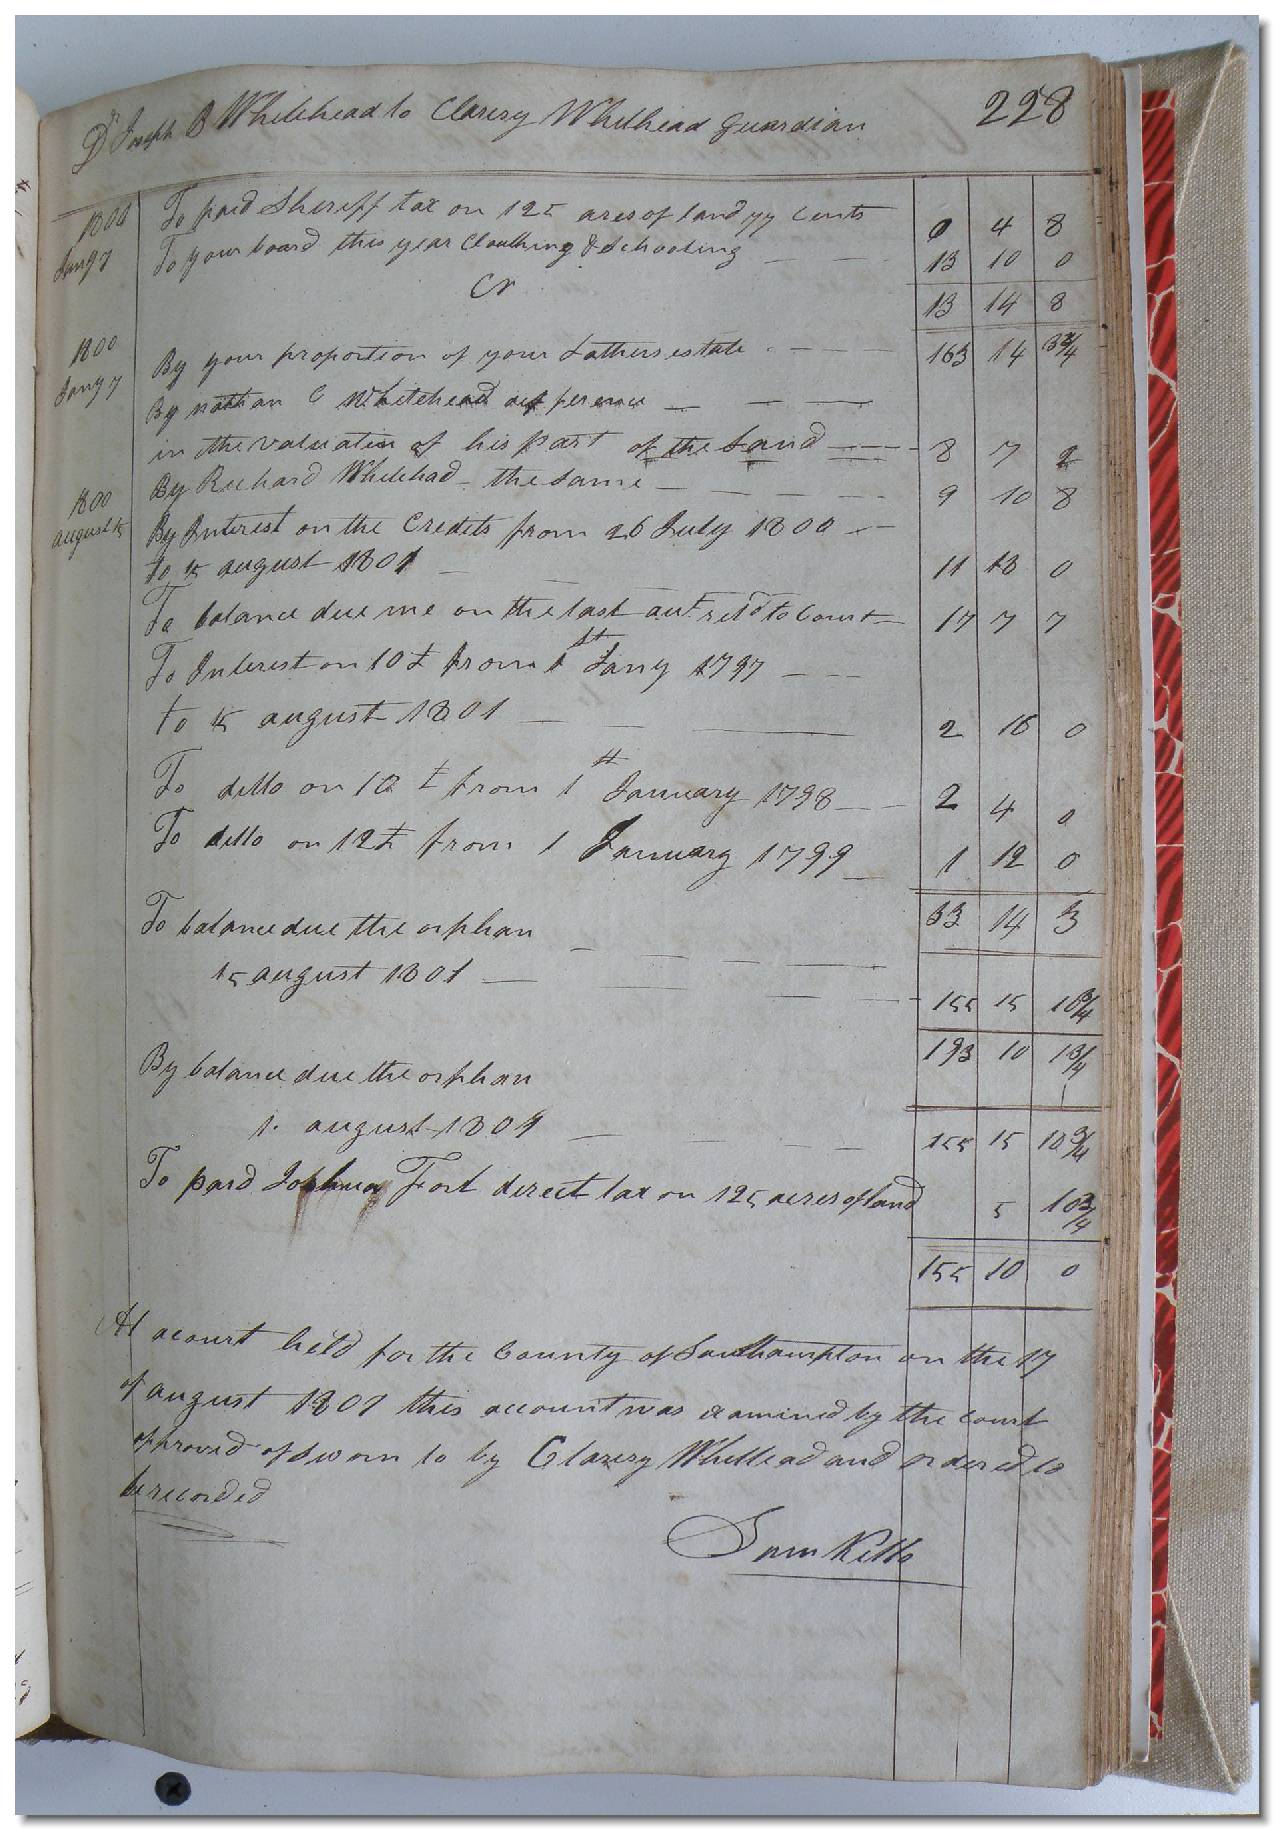 Dr Joseph B Whitehead to Claresy Whithead Guardian 228
1800 To paid Sheriff tax on 125 acres of land 77 cents 0 4 8
Jany 7 To your board this year Cloathing & Schooling 13 10 0
Cr 13 14 8
1800
Jany 7 By your proportion of your Fathers estate 163 14 3 3/4
By nathan Whitehead difference
in the valuation of his part of the Land 8 7 2
1800 By Richard Whitehad the Same 9 10 8
august 15 By Interest on the Credits from 26 July 1800
to 15 august 1801 11 18 0
To balance due me on the last acct retd to Court 17 7 7
To Interest on 10£ from 1st Jany 1797
to 15 august 1801 2 16 0
To ditto on 10£ from 1st January 1798 2 4 0
To ditto on 12£ from 1 January 1799 1 12 0
33 14 3
To balance due the orphan
15 august 1801 155 15 10 3/4
193 10 1 3/4
By balance due the orphan
1. august 1801 155 15 10 3/4
To paid Joshua Fort direct tax on 125 acres of land 5 10 3/4
155 10 0
At acourt held for the County of Southampton on the 17
of august 1801 this account was examined by the Court
approved of Sworn to by Claresy Whitlead and ordered to
be recorded
Sam Kello